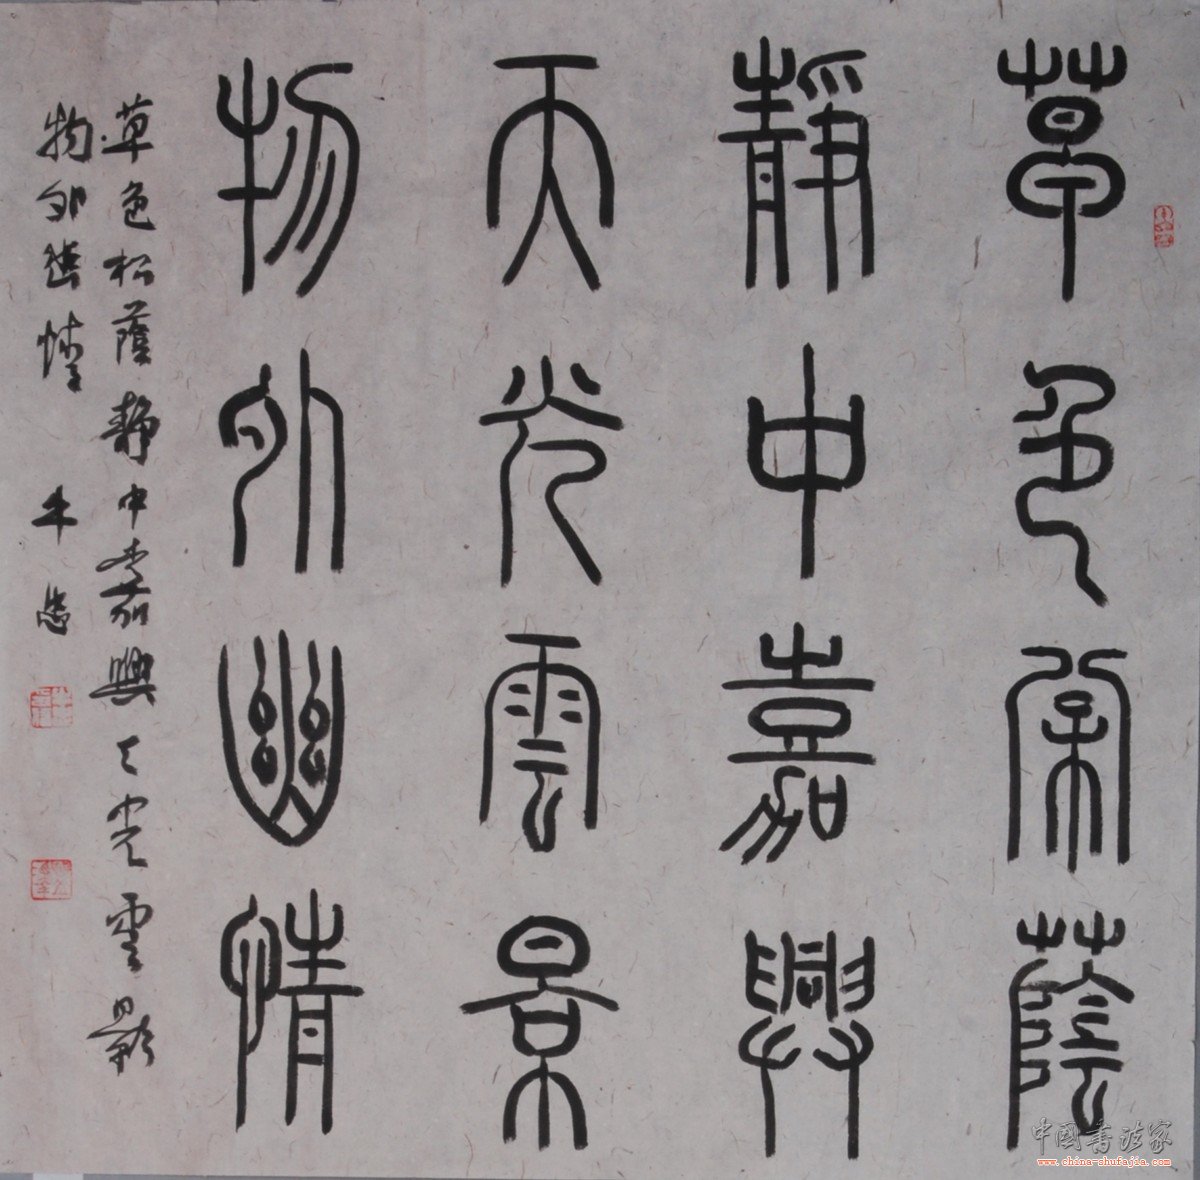 草色松蔭
靜中嘉興
天光雲景
物外幽情
草色松蔭靜中嘉興天光雲影
物外幽情 牛
中国书法家
www.china-shufajia.com